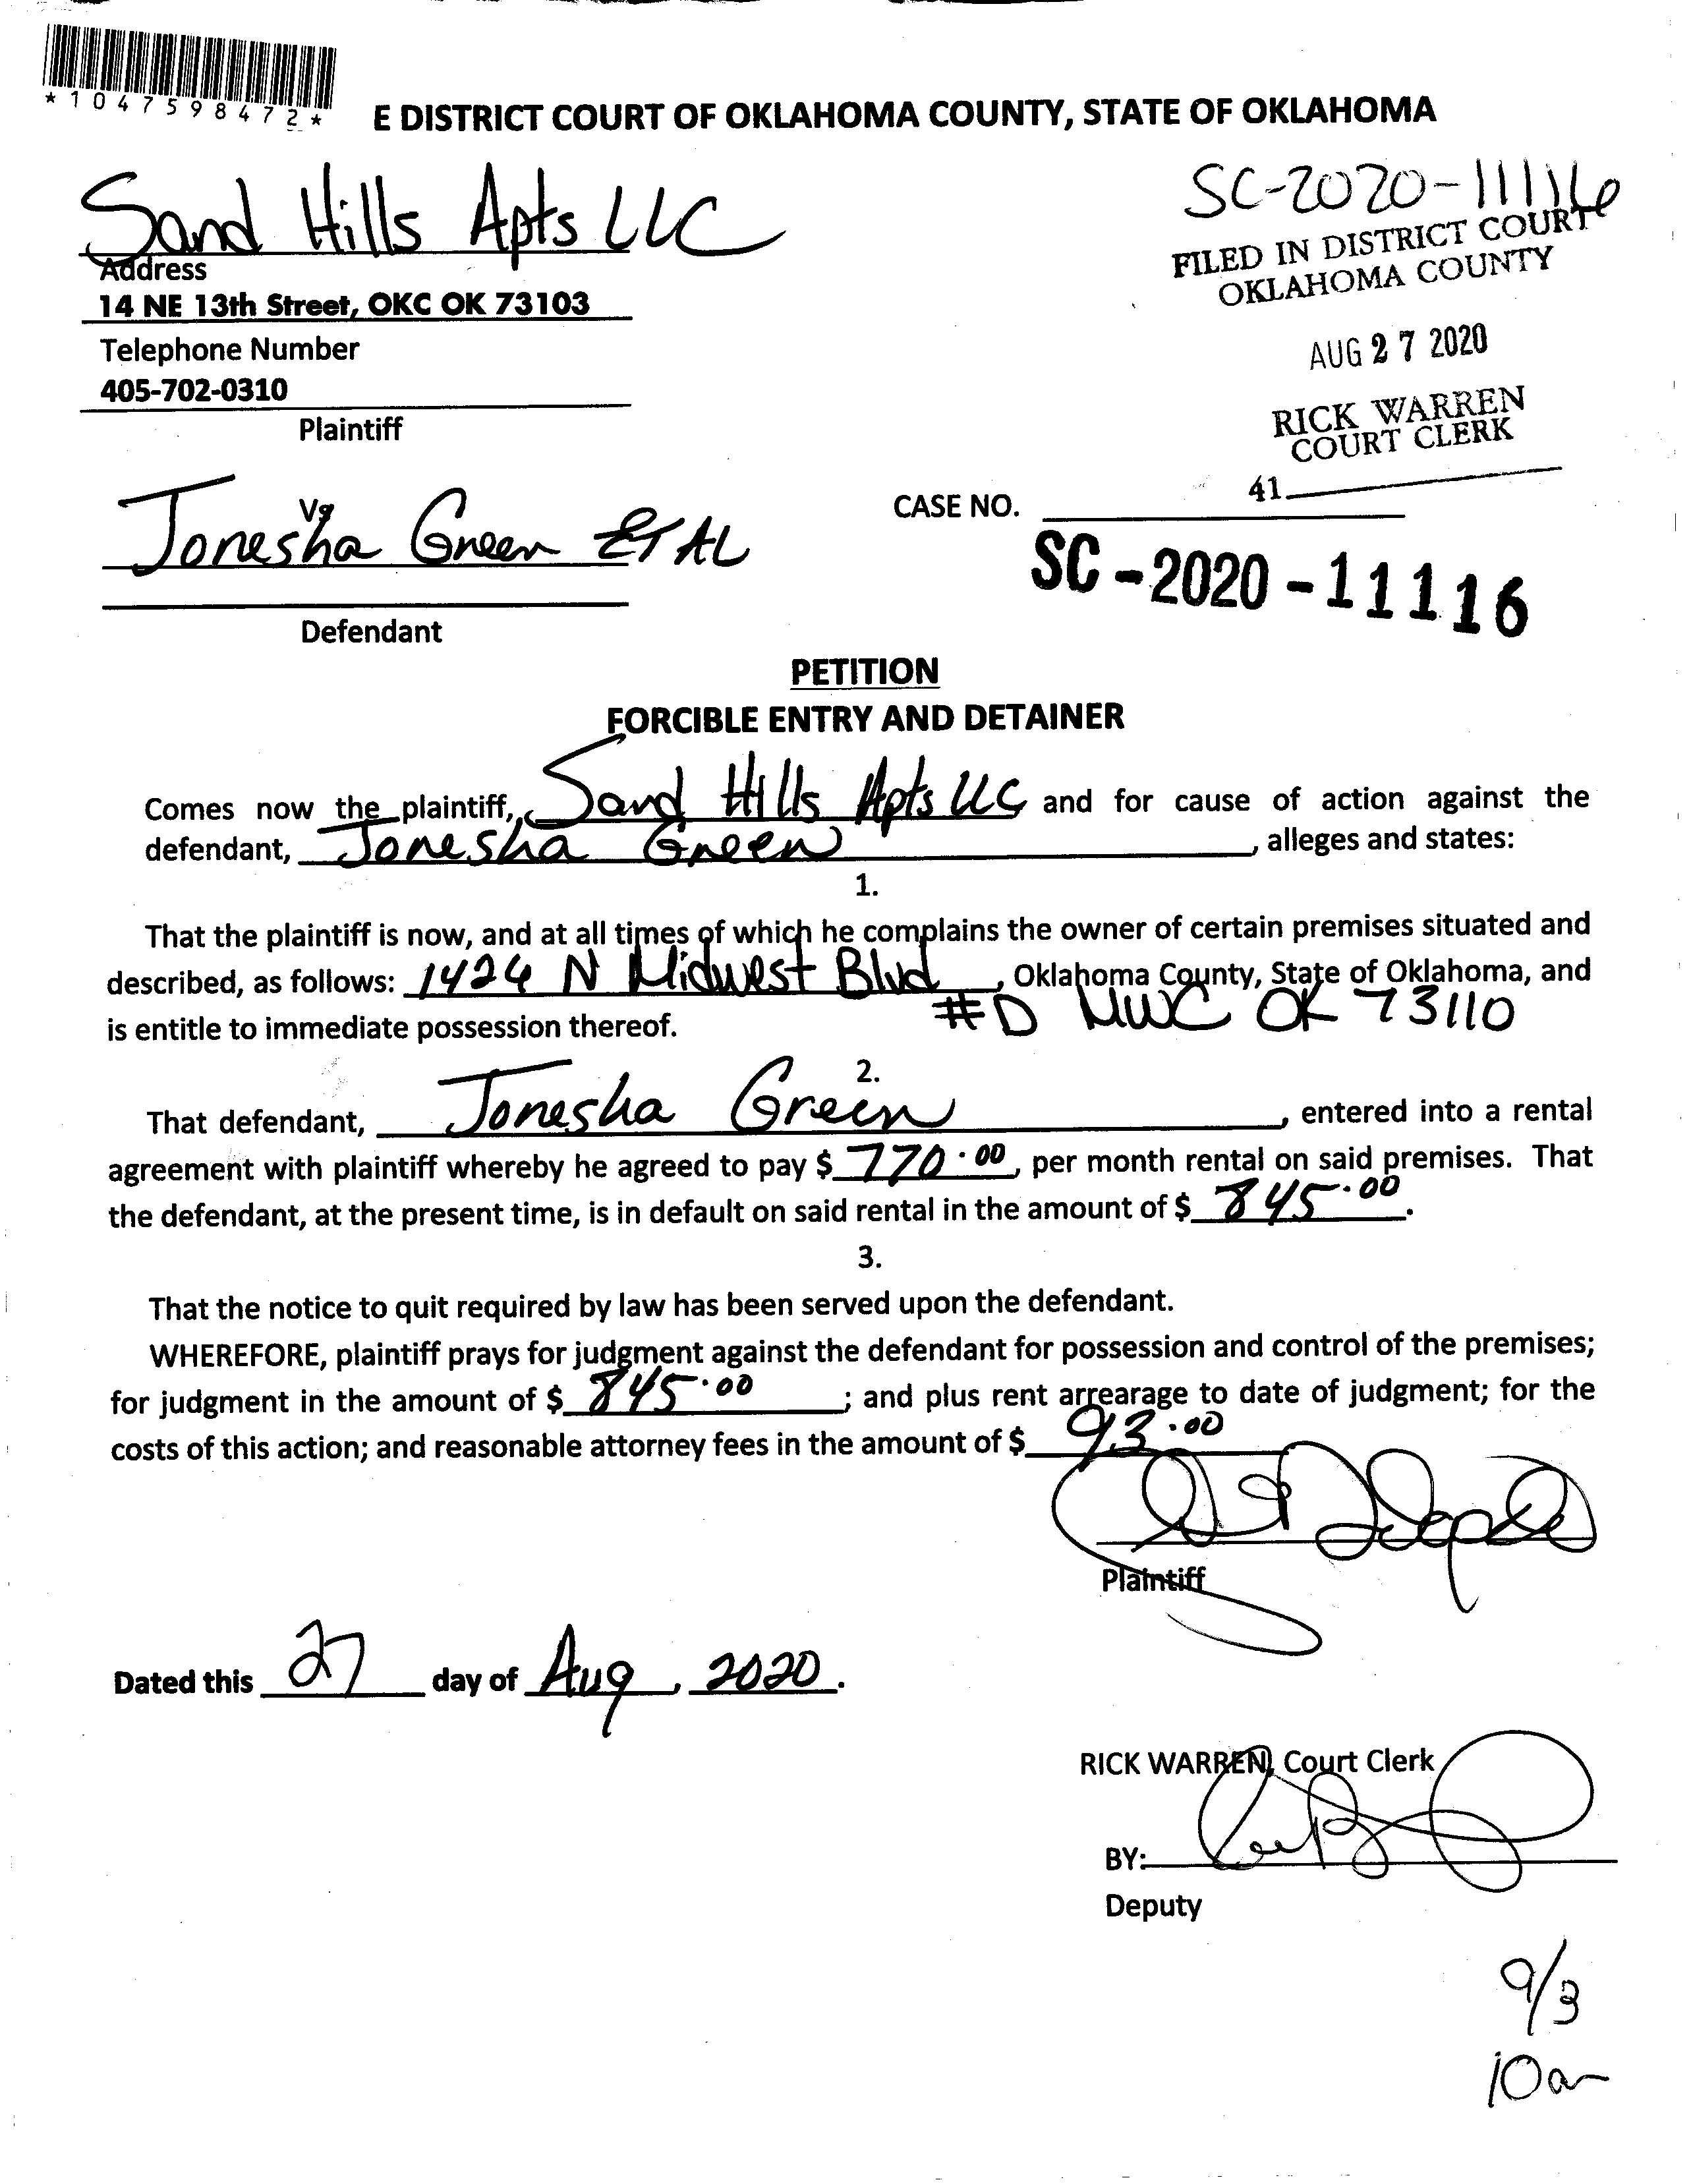 *1047598472*
E DISTRICT COURT OF OKLAHOMA COUNTY, STATE OF OKLAHOMA
SC-2020-11116
Sand Hills Apts LLC
FILED IN DISTRICT COURT
OKLAHOMA COUNTY
Address
14 NE 13th Street, OKC OK 73103
Telephone Number
AUG 27 2020
405-702-0310
RICK WARREN
COURT CLERK
Plaintiff
41
Vs
CASE NO.
Jonesha Green ET AL
SC-2020-11116
Defendant
PETITION
FORCIBLE ENTRY AND DETAINER
Comes now the plaintiff, Sand Hills Apts LLC and for cause of action against the
defendant, Jonesha Green, alleges and states:
1.
That the plaintiff is now, and at all times of which he complains the owner of certain premises situated and
described, as follows: 1424 N Midwest Blvd, Oklahoma County, State of Oklahoma, and
#D MWC OK 73110
is entitle to immediate possession thereof.
2.
That defendant, Jonesha Green, entered into a rental
agreement with plaintiff whereby he agreed to pay $ 770.00, per month rental on said premises. That
the defendant, at the present time, is in default on said rental in the amount of $ 845.00.
3.
That the notice to quit required by law has been served upon the defendant.
WHEREFORE, plaintiff prays for judgment against the defendant for possession and control of the premises;
for judgment in the amount of $ 845.00; and plus rent arrearage to date of judgment; for the
costs of this action; and reasonable attorney fees in the amount of $ 93.00
Plaintiff
Dated this 27 day of Aug, 2020.
RICK WARREN, Court Clerk
BY:
Deputy
9/3
10am